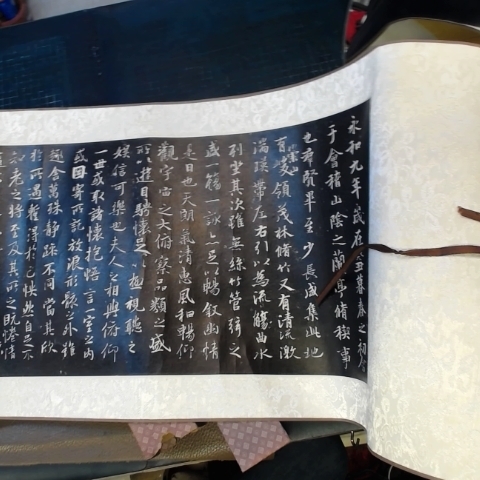 永和九年歲在癸丑暮春之初
于會稽山陰之蘭亭脩稧事
也羣賢畢至少長咸集此地
有崇山峻領茂林脩竹又有清流激
湍暎帶左右引以為流觴曲水
列坐其次雖無絲竹管弦之
盛一觴一詠亦足以暢敘幽情
是日也天朗氣清惠風和暢仰
觀宇宙之大俯察品類之盛
所以遊目騁懷足以極視聽之
娛信可樂也夫人之相與俯仰
一世或取諸懷抱悟言一室之內
或因寄所託放浪形骸之外雖
趣舍萬殊靜躁不同當其欣
於所遇蹔得於己怏然自足不
知老之將至及其所之既惓情